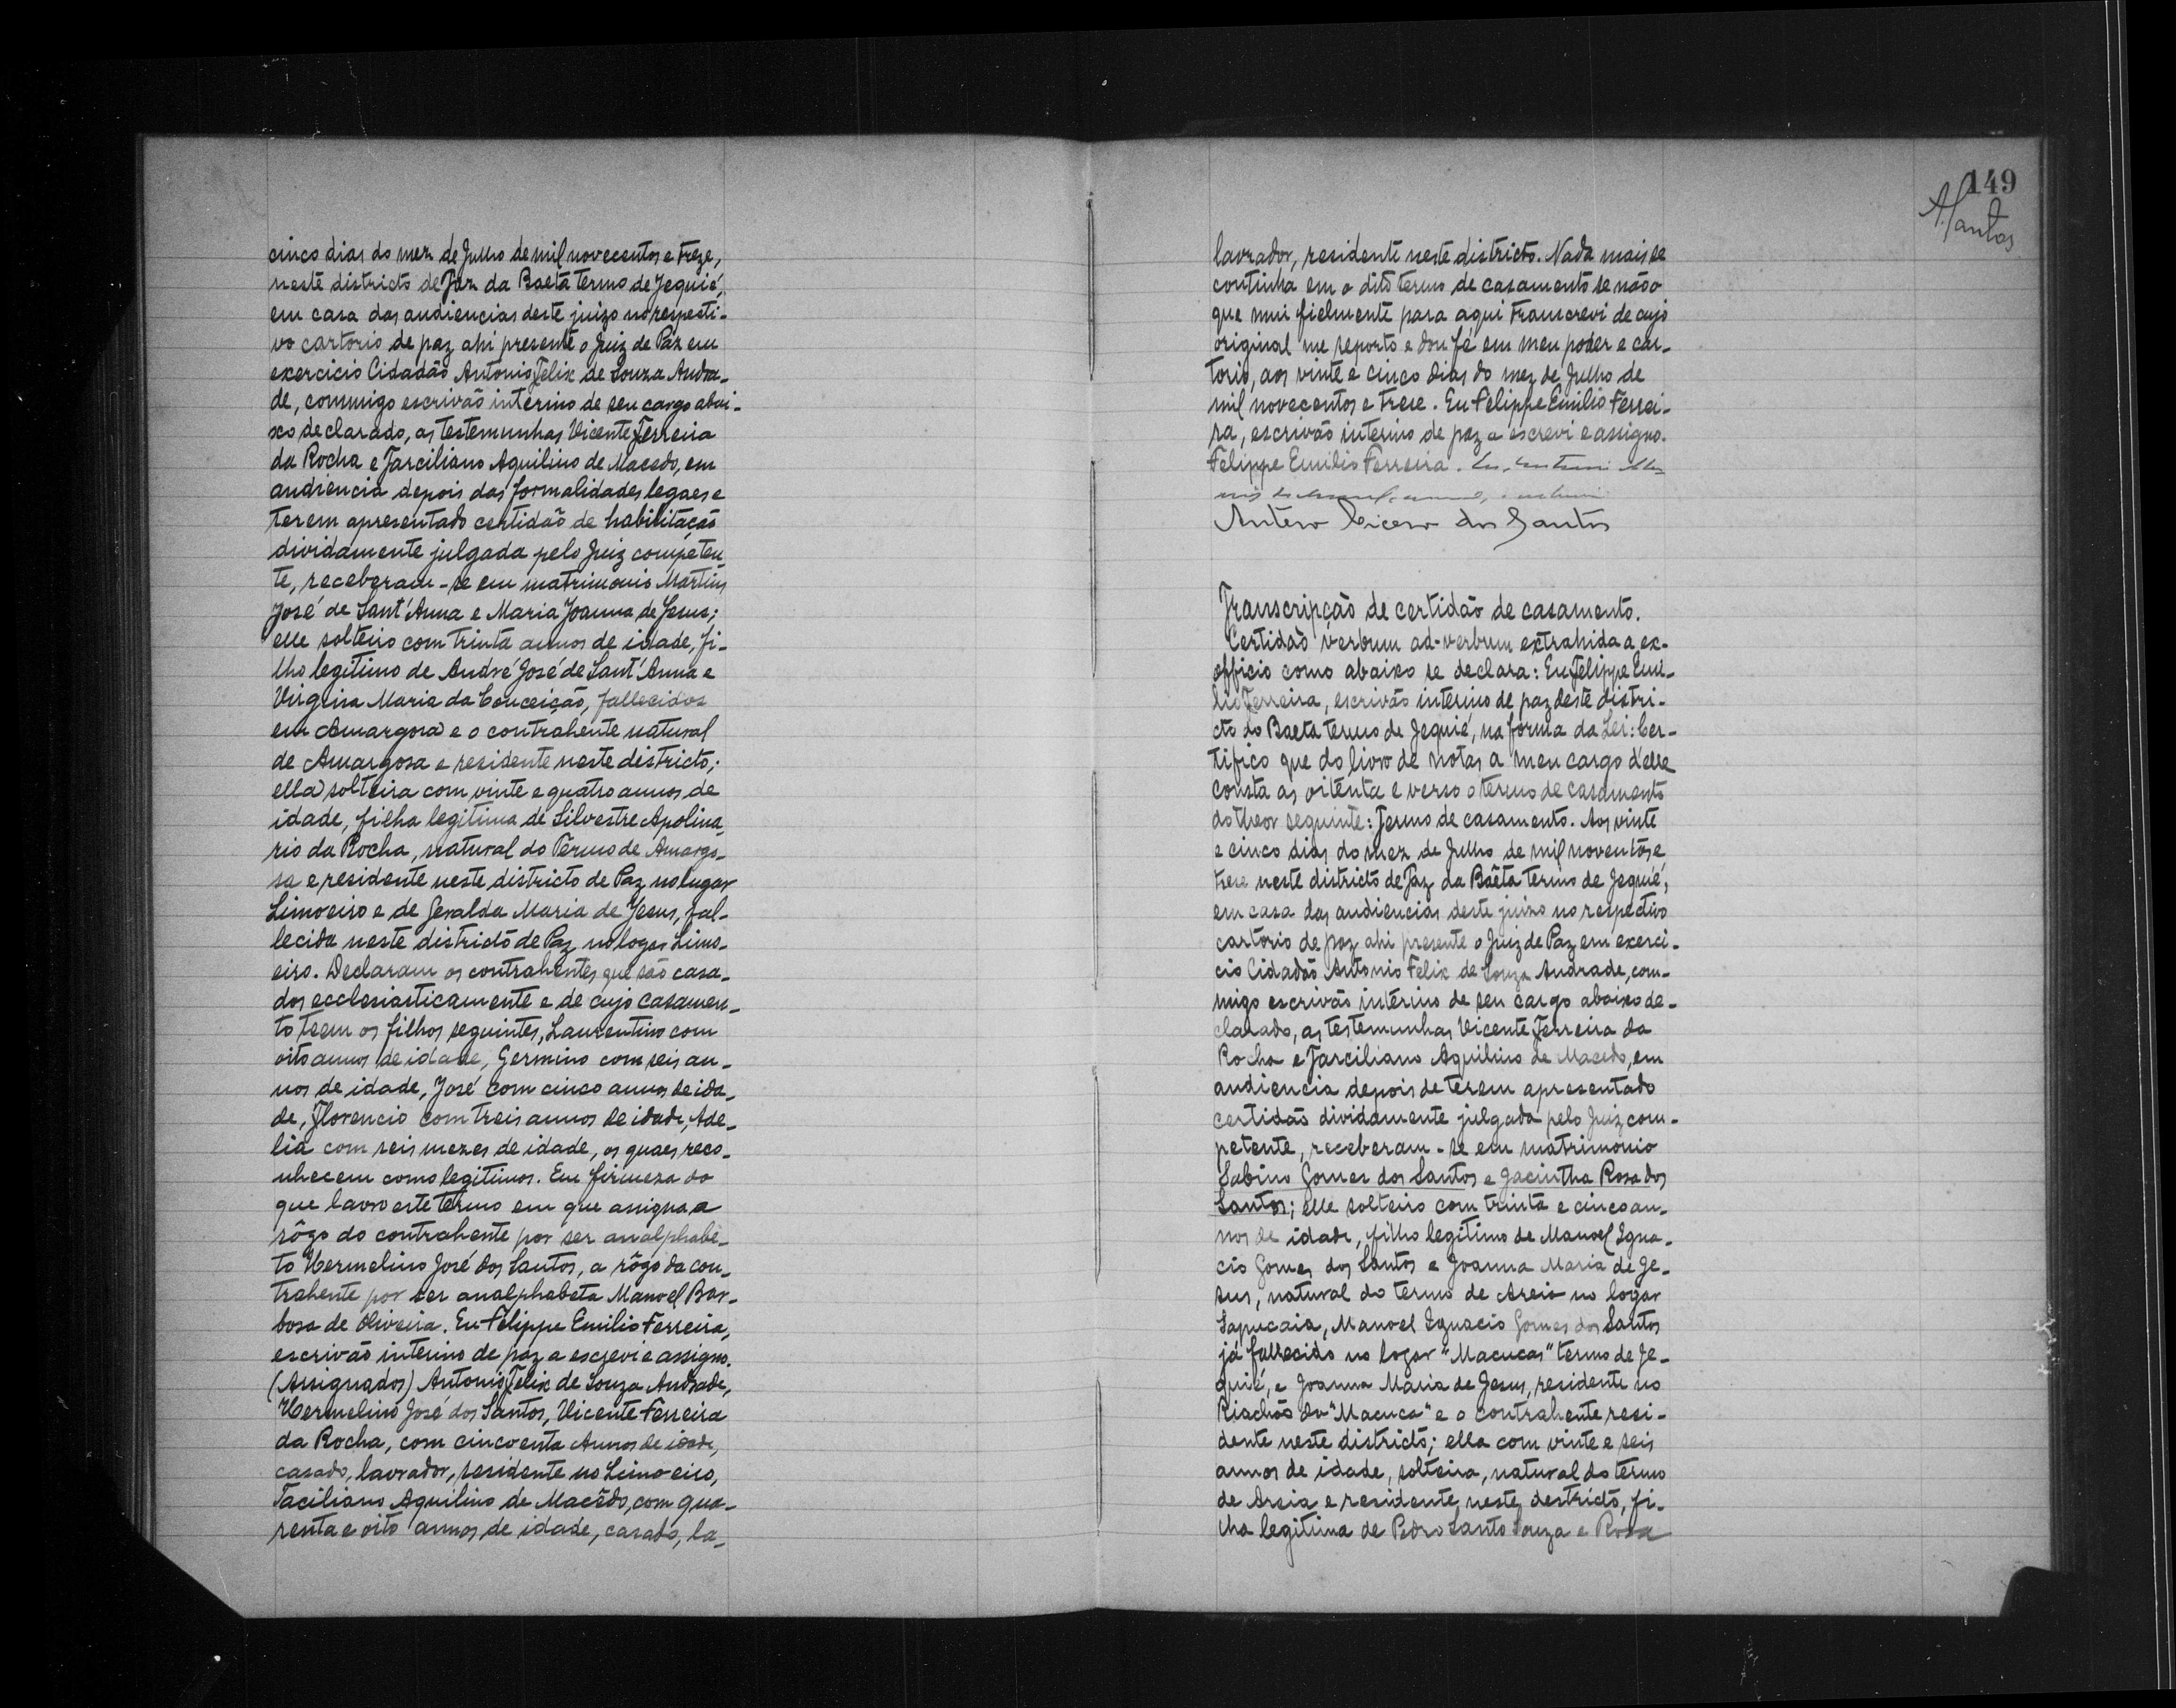 cinco dias do mez de Julho de mil novecentos e treze,
neste districto de Paz da Baeta termo de Jequié,
em casa das audiencias deste juizo no respecti-
vo cartorio de paz ahi presente o Juiz de Paz em
exercicio Cidadão Antonio Felix de Souza Andra-
de, commigo escrivão interino de seu cargo abai-
xo declarado, as testemunhas Vicente Ferreira
da Rocha e Tarciliano Aquilino de Macedo, em
audiencia depois das formalidades legaes e
terem apresentado certidão de habilitação
dividamente julgada pelo Juiz competen-
te, receberam-se em matrimonio Martins
José de Sant'Anna e Maria Joanna de Jesus;
elle solteiro com trinta annos de idade, fi-
lho legitimo de André José de Sant'Anna e
Virginia Maria da Conceição, fallecidos
em Amargosa e o contrahente natural
de Amargosa e residente neste districto;
ella solteira com vinte e quatro annos de
idade, filha legitima de Silvestre Apolina-
rio da Rocha, natural do Termo de Amargo-
sa e residente neste districto de Paz no lugar
Limoeiro e de Geralda Maria de Jesus, fal-
lecida neste districto de Paz no logar Limo-
eiro. Declaram os contrahentes que são casa-
dos ecclesiasticamente e de cujo casamen-
to teem os filhos seguintes, Laurentino com
oito annos de idade, Germino com seis an-
nos de idade, José com cinco annos de ida-
de, Florencio com treis annos de idade, Ade-
lia com seis mezes de idade, os quaes reco-
nhecem como legitimos. Em firmeza do
que lavro este termo em que assigna a
rôgo do contrahente por ser analphabe-
to Hermelino José dos Santos, a rôgo da con-
trahente por ser analphabeta Manoel Bar-
bosa de Oliveira. Eu Felippe Emilio Ferreira,
escrivão interino de paz a escrevi e assigno.
(Assignados) Antonio Felix de Souza Andrade,
Hermelino José dos Santos, Vicente Ferreira
da Rocha, com cincoenta Annos de idade,
casado, lavrador, residente no Limoeiro,
Taciliano Aquilino de Macêdo, com qua-
renta e oito annos de idade, casado, la-
149
A. Santos
lavrador, residente neste districto. Nada mais se
continha em o dito termo de casamento se não o
que mui fielmente para aqui transcrevi de cujo
original me reporto e dou fé em meu poder e car-
torio, aos vinte e cinco dias do mez de Julho de
mil novecentos e trese. Eu Felippe Emilio Ferrei-
ra, escrivão interino de paz a escrevi e assigno.
Felippe Emilio Ferreira.
Antero Cicero dos Santos
Transcripção de certidão de casamento.
Certidão verbum ad-verbum extrahida a ex-
officio como abaixo se declara: Eu Felippe Emi-
lio Ferreira, escrivão interino de paz deste distri-
cto do Baeta termo de Jequié, na forma da Lei: Cer-
tifico que do livro de notas a meu cargo d'elle
consta as oitenta e verso o termo de casamento
do theor seguinte: Termo de casamento. Aos vinte
e cinco dias do mez de Julho de mil noventos e
trese neste districto de Paz da Baêta termo de Jequié,
em casa das audiencias deste juizo no respectivo
cartorio de paz ahi presente o Juiz de Paz em exerci-
cio Cidadão Antonio Felix de Souza Andrade, com-
migo escrivão interino de seu cargo abaixo de-
clarado, as testemunhas Vicente Ferreira da
Rocha e Tarciliano Aquilino de Macedo, em
audiencia depois de terem apresentado
certidão dividamente julgada pelo Juiz com-
petente, receberam-se em matrimonio
Sabino Gomes dos Santos e Jacintha Rosa dos
Santos; elle solteiro com trinta e cinco an-
nos de idade, filho legitimo de Manoel Igna-
cio Gomes dos Santos e Joanna Maria de Je-
sus, natural do termo de Areia no logar
Sapucaia, Manoel Ignacio Gomes dos Santos
já fallecido no logar "Macucas" termo de Je-
quié, e Joanna Maria de Jesus, residente no
Riachão do "Macuca" e o contrahente resi-
dente neste districto; ella com vinte e seis
annos de idade, solteira, natural do termo
de Areia e residente neste destricto, fi-
lha legitima de Pedro Santo Souza e Rosa